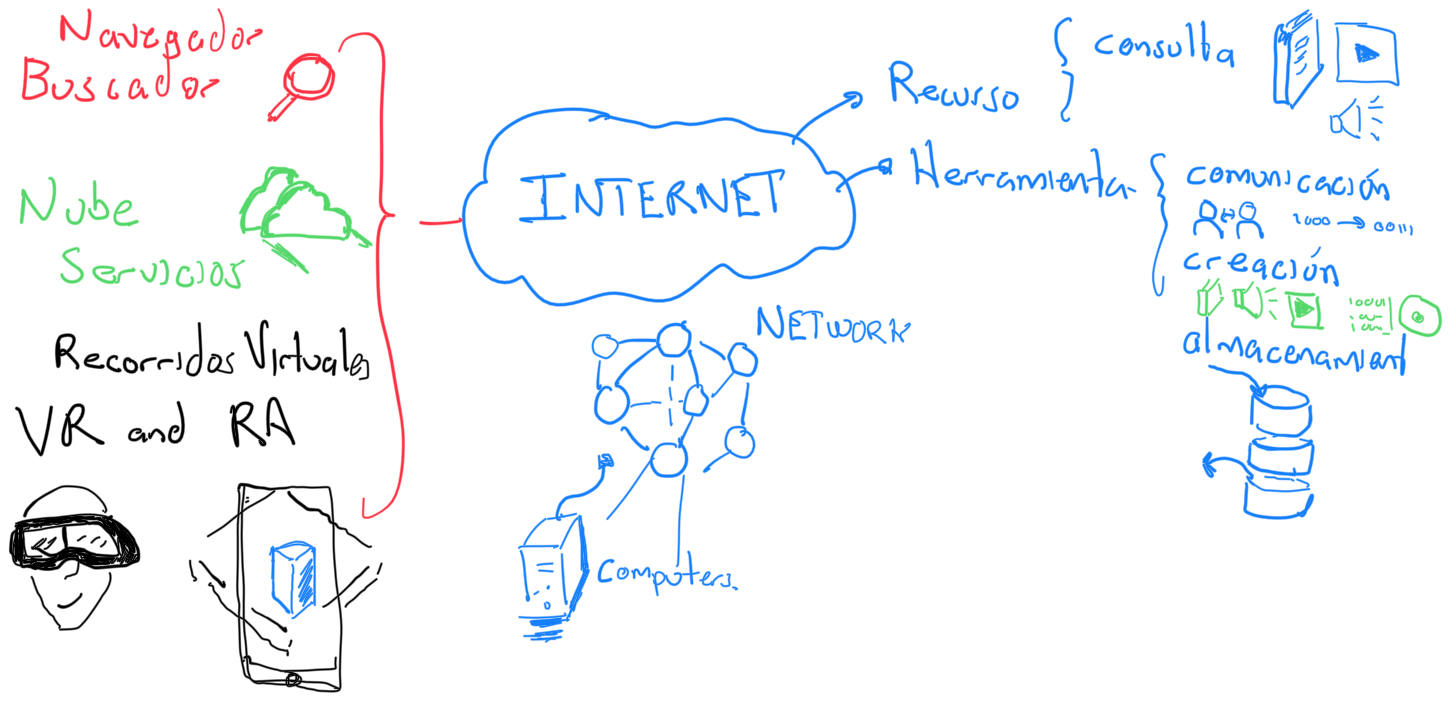 Navegador
Buscador
Nube
Servicios
Recorridos Virtuales
VR and RA
INTERNET
NETWORK
Computers.
Recurso
consulta
Herramienta
comunicación
1000 → 00111
creación
10001
almacenamient